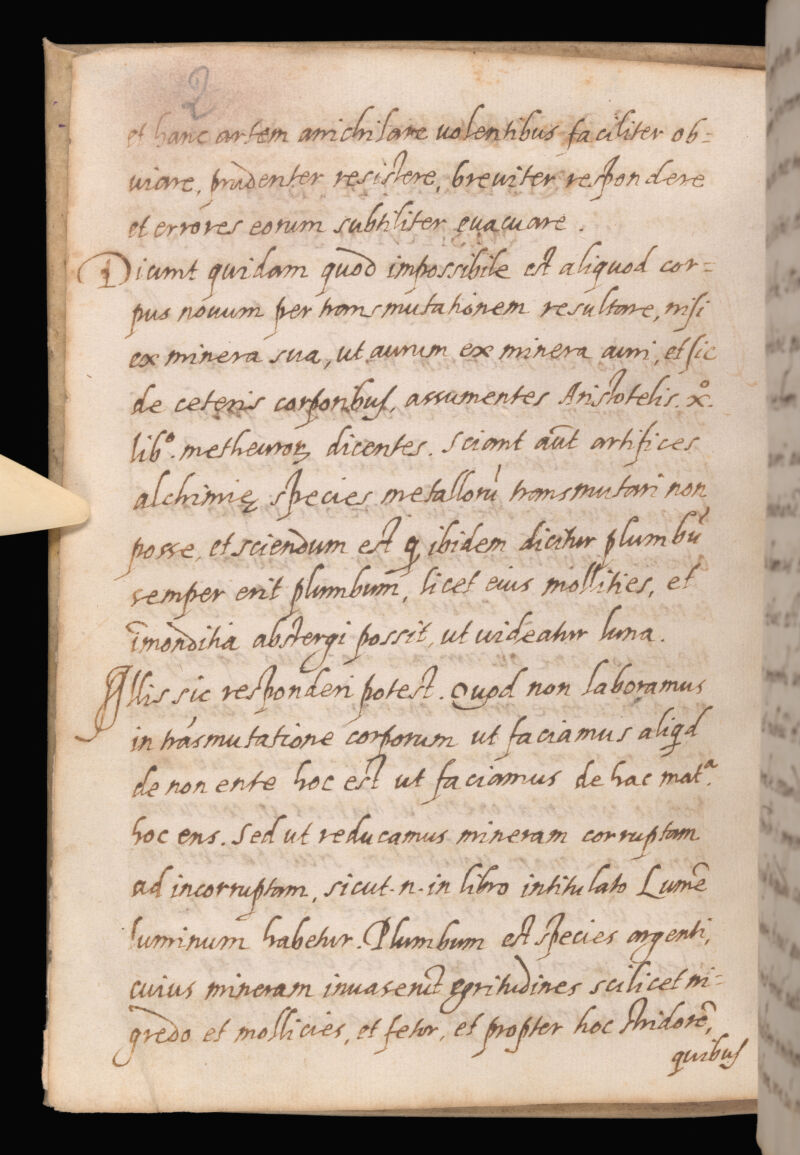 2
et hanc artem annichilare volentibus faciliter ob=
viare, prudenter resistere, breviter respondere
et errores eorum subtiliter evacuare.
Dicunt quidam quod impossibile est aliquod cor=
pus novum per transmutationem resultare, nisi
ex minera sua, ut aurum ex minera auri, et sic
de ceteris corporibus, assumentes Aristotelis. x.º
lib.º metheuroꝝ dicentes. Sciant aūt artifices
alchimię species metallorū transmutari non
posse, et sciendum est ꝙ ibidem dicitur plumbū
semper erit plumbum, licet eius mollities, et
īmonditia abstergi possit, ut videatur luna.
Illis sic responderi potest. Quod non laboramus
in trāsmutatione corporum ut faciamus aliqd
de non ente hoc est ut faciamus de hac mat.ª
hoc ens. Sed ut reducamus mineram corruptam
ad incorruptam, sicut .n. in libro intitulato Lumē
luminum habetur. Plumbum est species argenti,
cuius mineram invaserūt egritudines scilicet ni=
gredo et mollicies, et fetor, et propter hoc stridorē,
quibus